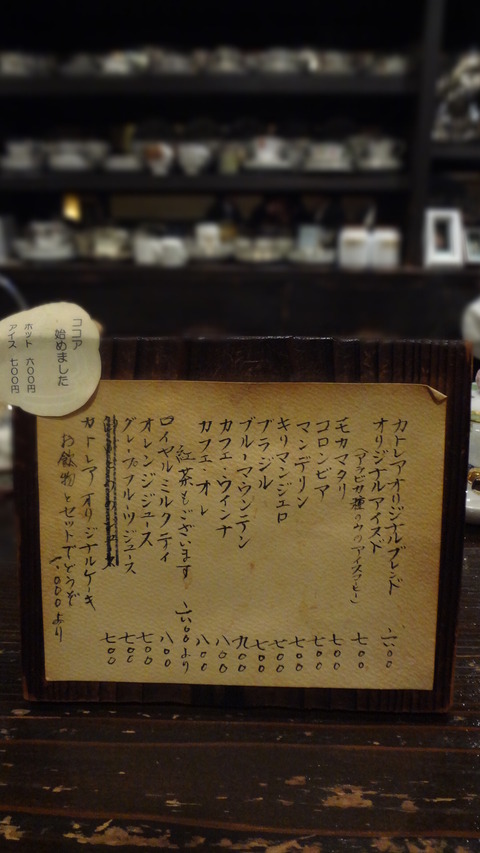 ココア
始めました
ホット 六〇〇円
アイス 七〇〇円
カトレアオリジナルブレンド 六〇〇
オリジナルアイスド 七〇〇
(アラビカ種のみのアイスコーヒー)
モカマタリ 七〇〇
コロンビア 七〇〇
マンデリン 七〇〇
キリマンジェロ 七〇〇
ブラジル 七〇〇
ブルーマウンテン 九〇〇
カフェ・ウィンナ 八〇〇
カフェ・オレ 八〇〇
紅茶もございます 六〇〇より
ロイヤルミルクティ 八〇〇
オレンジジュース 七〇〇
グレープフルーツジュース 七〇〇
七〇〇
カトレアオリジナルケーキ
お飲物とセットでどうぞ
一、〇〇〇より